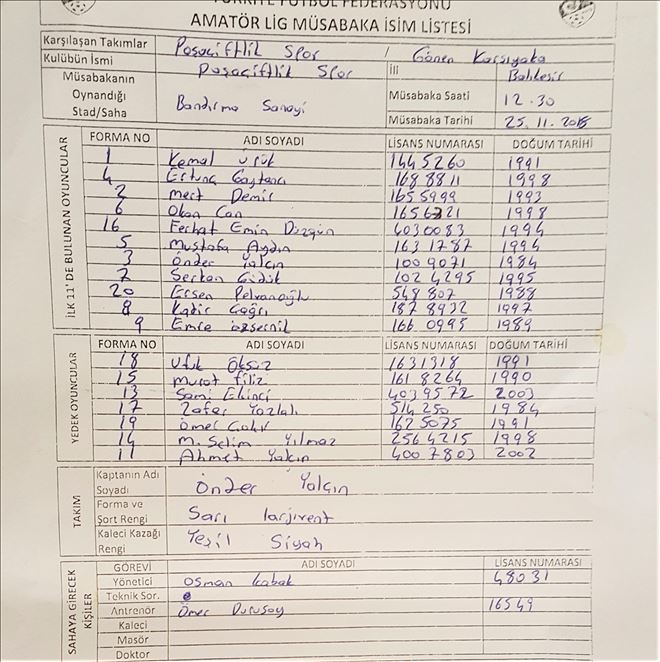 TÜRKİYE FUTBOL FEDERASYONU
AMATÖR LİG MÜSABAKA İSİM LİSTESİ
Karşılaşan Takımlar Paşaçiftlik Spor / Gönen Karşıyaka
Kulübün İsmi Paşaçiftlik Spor İli Balıkesir
Müsabakanın Oynandığı Stad/Saha Bandırma Sanayi
Müsabaka Saati 12.30
Müsabaka Tarihi 25.11.2018
İLK 11' DE BULUNAN OYUNCULAR
FORMA NO ADI SOYADI LİSANS NUMARASI DOĞUM TARİHİ
1 Kemal 1445260 1991
4 Ertunç 1688811 1998
2 Mert Demir 1655999 1993
6 Okan Can 1656321 1998
16 Ferhat Emin Düzgün 4030083 1994
5 Mustafa Aydın 1631787 1994
3 Önder Yalçın 1009071 1984
7 Serkan Gidik 1024295 1995
20 Ersen Pelvanoğlu 548807 1988
8 Kadir Çağrı 1878932 1997
9 Emre 1660995 1989
YEDEK OYUNCULAR
FORMA NO ADI SOYADI LİSANS NUMARASI DOĞUM TARİHİ
18 Ufuk Öksüz 1631318 1991
15 Murat Filiz 1618264 1990
13 Sami Ekinci 4039572 2003
17 Zafer Yozlalı 514250 1984
19 Ömer 1625075 1991
14 M. Selim Yılmaz 2564215 1998
11 Ahmet Yalçın 4007803 2002
TAKIM
Kaptanın Adı Soyadı Önder Yalçın
Forma ve Şort Rengi Sarı larjivent
Kaleci Kazağı Rengi Yeşil Siyah
SAHAYA GİRECEK KİŞİLER
GÖREVİ ADI SOYADI LİSANS NUMARASI
Yönetici Osman Kabak 48031
Teknik Sor.
Antrenör Ömer Durusoy 16549
Kaleci
Masör
Doktor